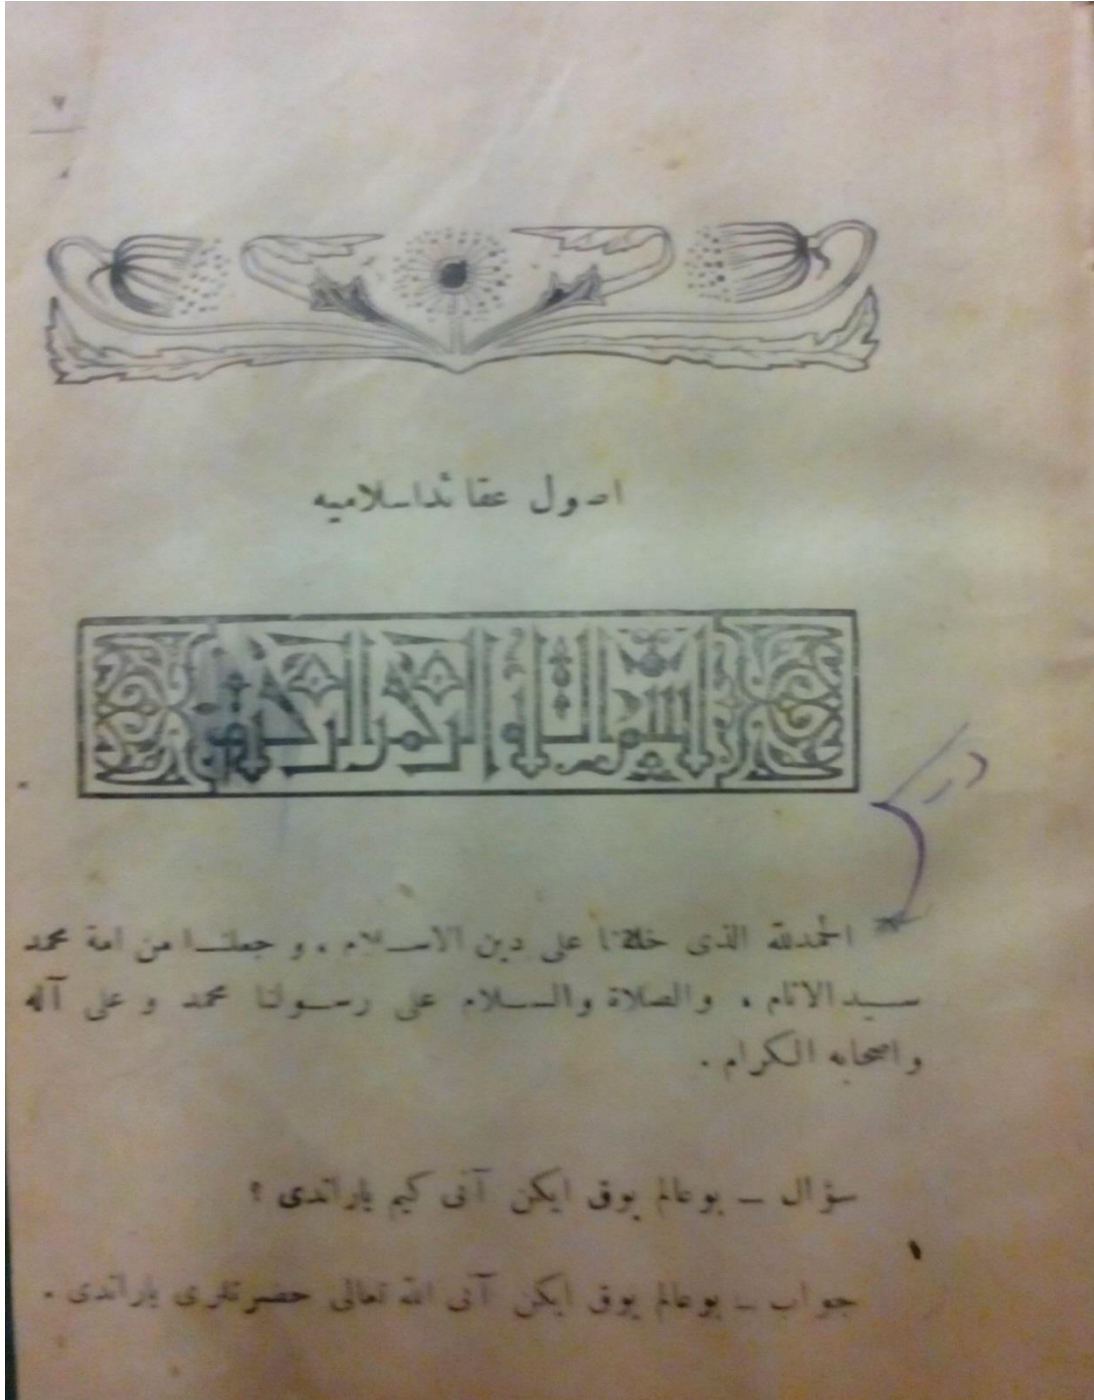 ٧
اصول عقائد اسلامیه
بسم الله الرحمن الرحيم
الحمدلله الذى خلقنا على دين الاسلام ، و جعلنا من امة محمد
سيد الانام ، والصلاة والسلام على رسولنا محمد و على آله
واصحابه الكرام .
سؤال ــ بوعالم يوق ايكن آنى كيم ياراتدى ؟
جواب ــ بوعالم يوق ايكن آنى الله تعالى حضرتلرى ياراتدى .